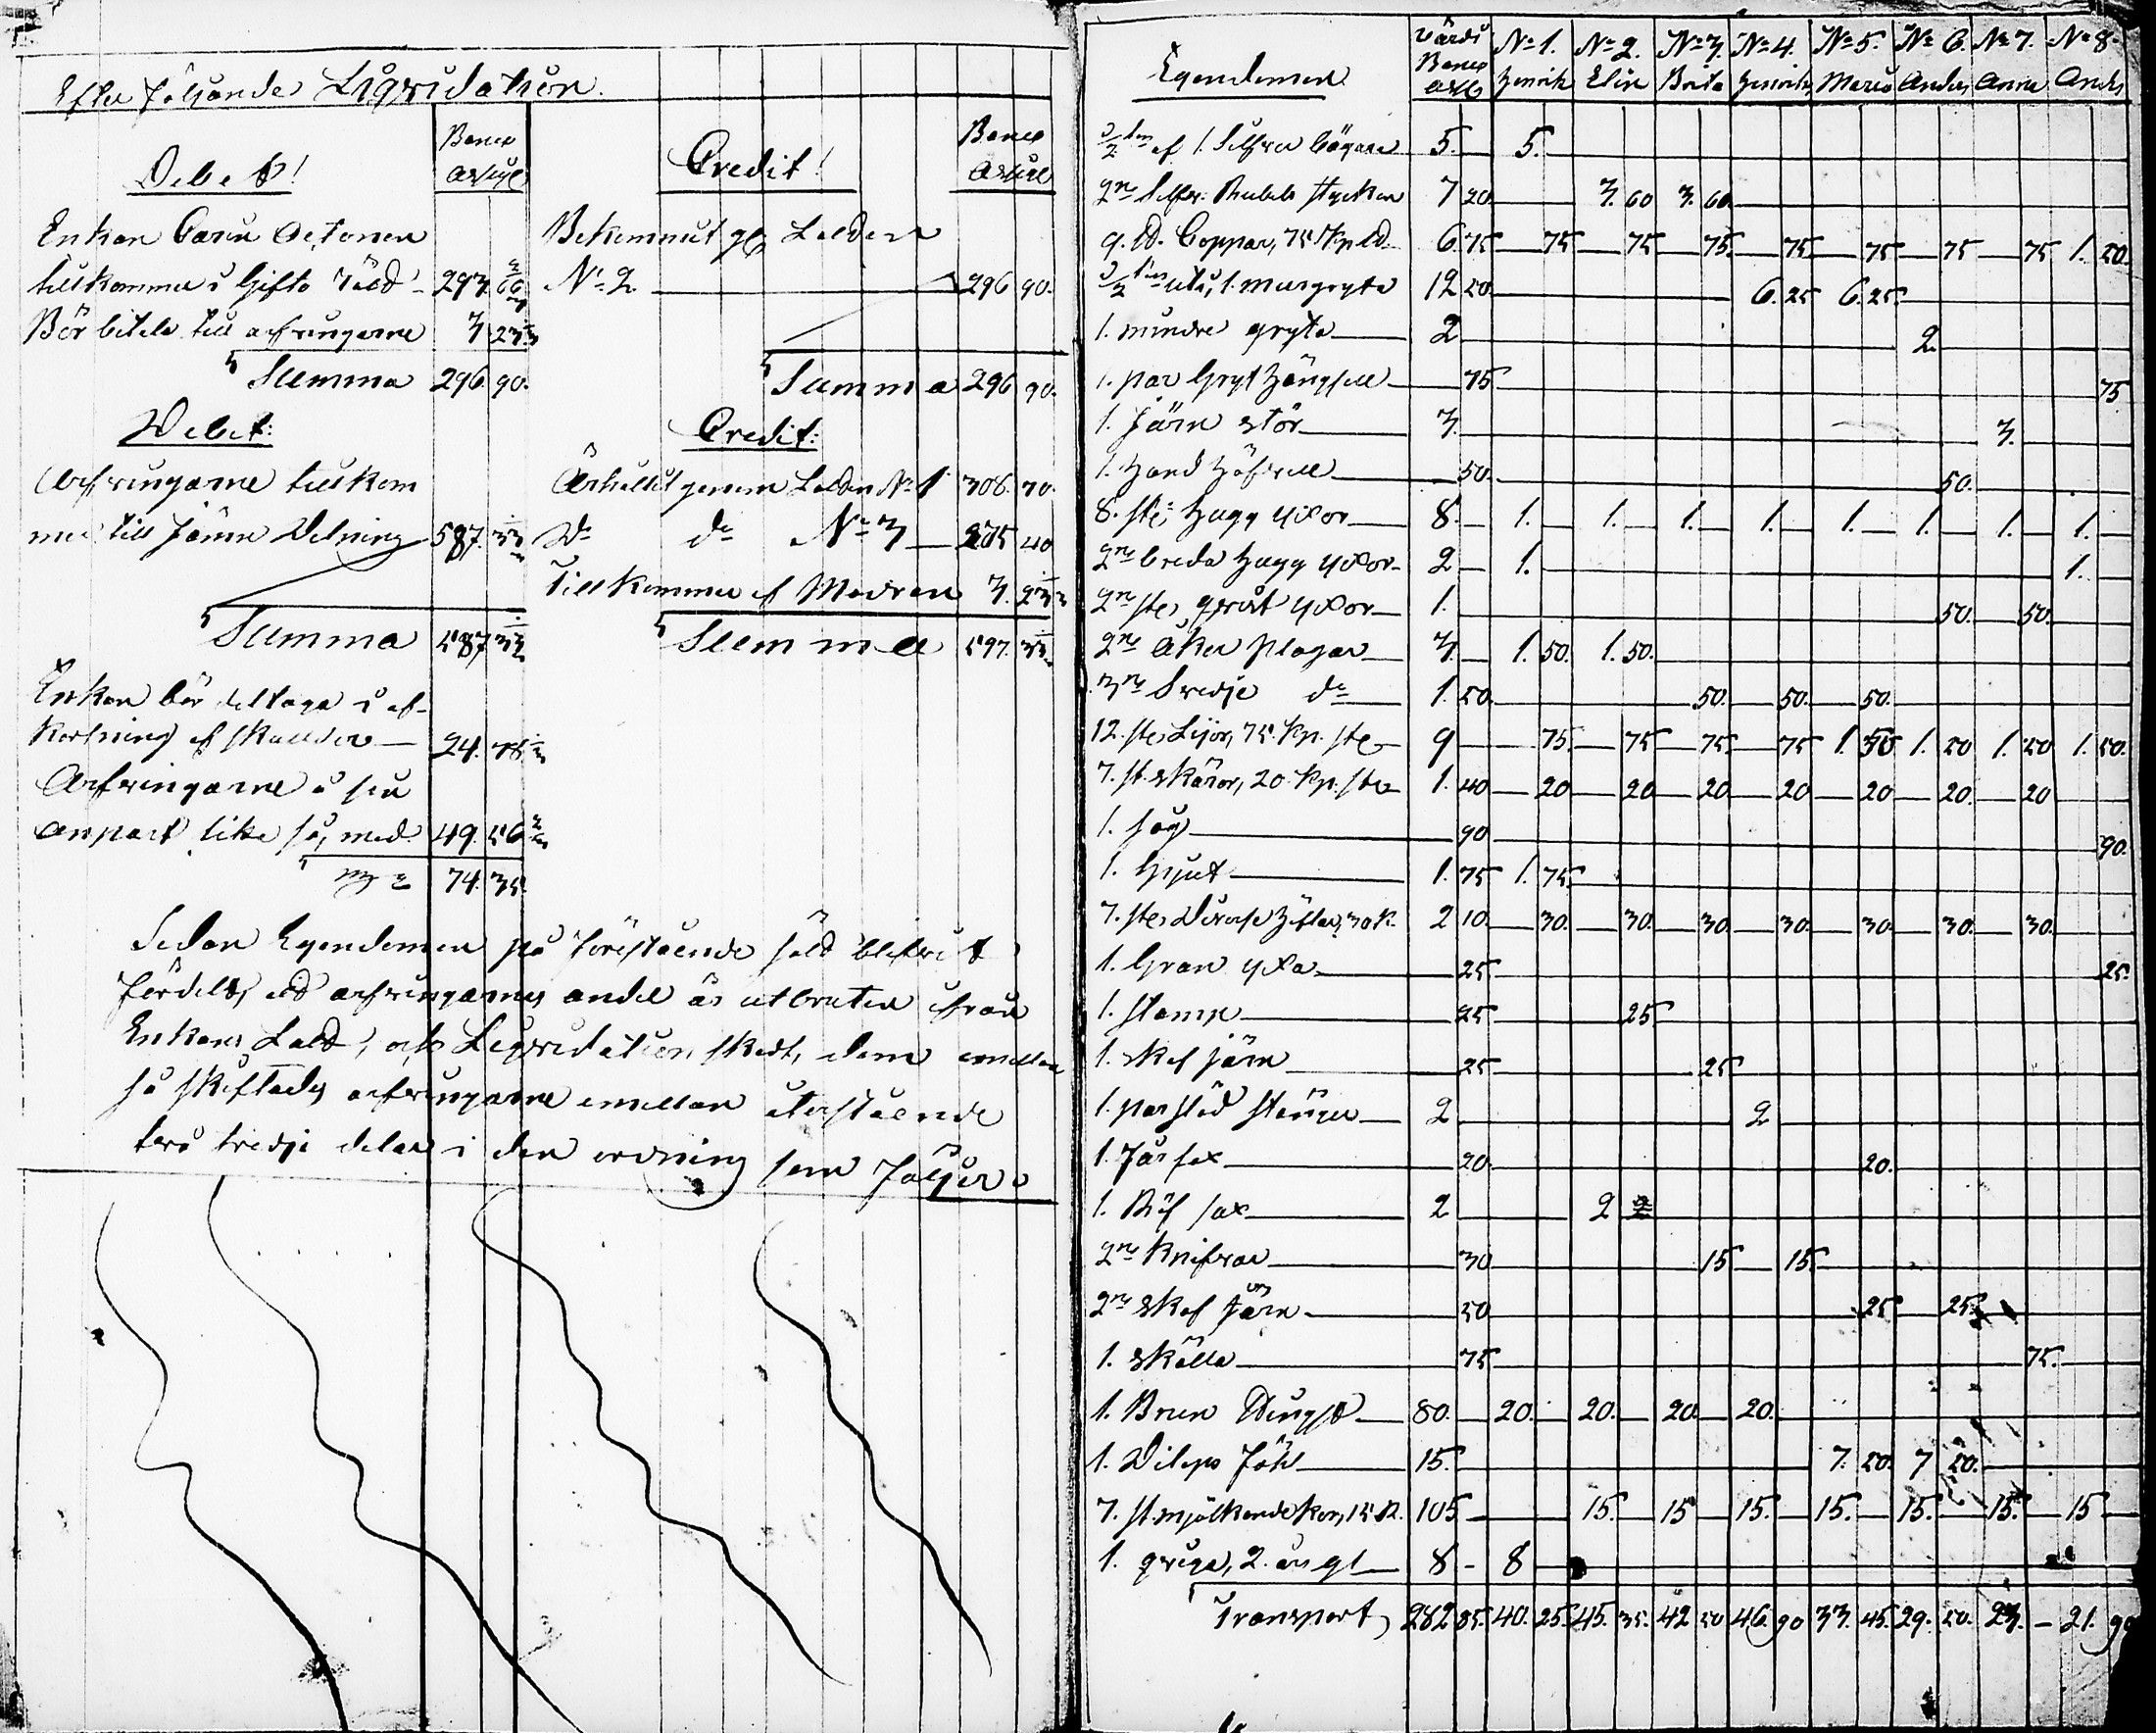 Efter följande Liqvidation.
Debet!
Banco
Credit!
Banco
Enkan
tillkommer i Gifto rätt 293. 66 2/3
Bör betala till arfvingarne 3 23 1/3
Summa 296. 90.
Bekommit genom Lolden
No 2 296 90.
Summa 296 90.
Debet:
Arfvingarne tillkom
mer till Jämn Delning 587. 33
Summa 587 33
Credit:
Erhållit genom Lolden No 1 306. 70.
Do do No 3 275 40
Tillkommer af Modren 3. 23 1/3
Summa 587. 33
Enkan bör deltaga i af-
kortning af skulden 24. 78 1/3
Arfvingarne å sin
anpart like så, med 49. 56 2/3
74. 35.
Sedan Egendomen på förestående sätt blifvit
fördelt, och arfvingarnes andel är utbruten ifrån
Enkans Lott, och Liqvidation skedt, dem emellan
så skiftades arfvingarne emellan återstående
två tredje delar i den ordning som följer:
Egendomen Värde Banco No 1. Henrik No 2. Elin No 3. Brita No 4. Henrik No 5. Maria No 6. Anders No 7. Anna No 8. Anders
af 1. Silfver bägare 5. 5.
2ne Silfver Rubels stycken 7 20. 3. 60 3. 60.
9. Coppar, 75 Kp 6. 75 75 75 75. 75. 75 75 75 1. 50.
1. murgryta 12 50. 6. 25 6. 25.
1. mindre gryta 2 2.
1. par Gryt hängslen 75 75
1. Järn stör 3. 3.
1. Hand 50. 50.
8. ste Hugg yxor 8. 1. 1. 1. 1. 1. 1. 1. 1.
2ne breda hugg yxor 2 1. 1.
2ne ste yxor 1. 50. 50.
2ne Åker plogar 3. 1. 50. 1. 50.
3ne Svedje do 1. 50. 50. 50. 50.
12. ste Lijor, 75. Kp. ste 9 75. 75 75 75 1. 50 1. 50 1. 50 1. 50.
7. st. skäror, 20. Kp. ste 1. 40 20 20 20 20 20 20. 20
1. såg 90 90.
1. Spjut 1. 75 1. 75.
7. ste 30 K. 2 10. 30. 30. 30. 30. 30. 30. 30.
1. yxa 25 25.
1. stamp 25 25
1. skaf järn 25 25
1. par stänger 2 2
1. Får sax 20. 20.
1. Räf sax 2 2
2ne knifvar 30 15 15.
2ne skaf Järn 50 25 25.
1. skälla 75 75.
1. Brun Wingst 80. 20. 20. 20. 20.
1. Föhl 15. 7. 50. 7 50.
7. st. mjölkande kor, 15 R. 105 15. 15 15. 15. 15. 15. 15
1. qviga, 2. års gl 8 - 8
Transport 282 85. 40. 25. 45. 35. 42 50 46. 90 33. 45. 29. 50. 23. - 21. 90